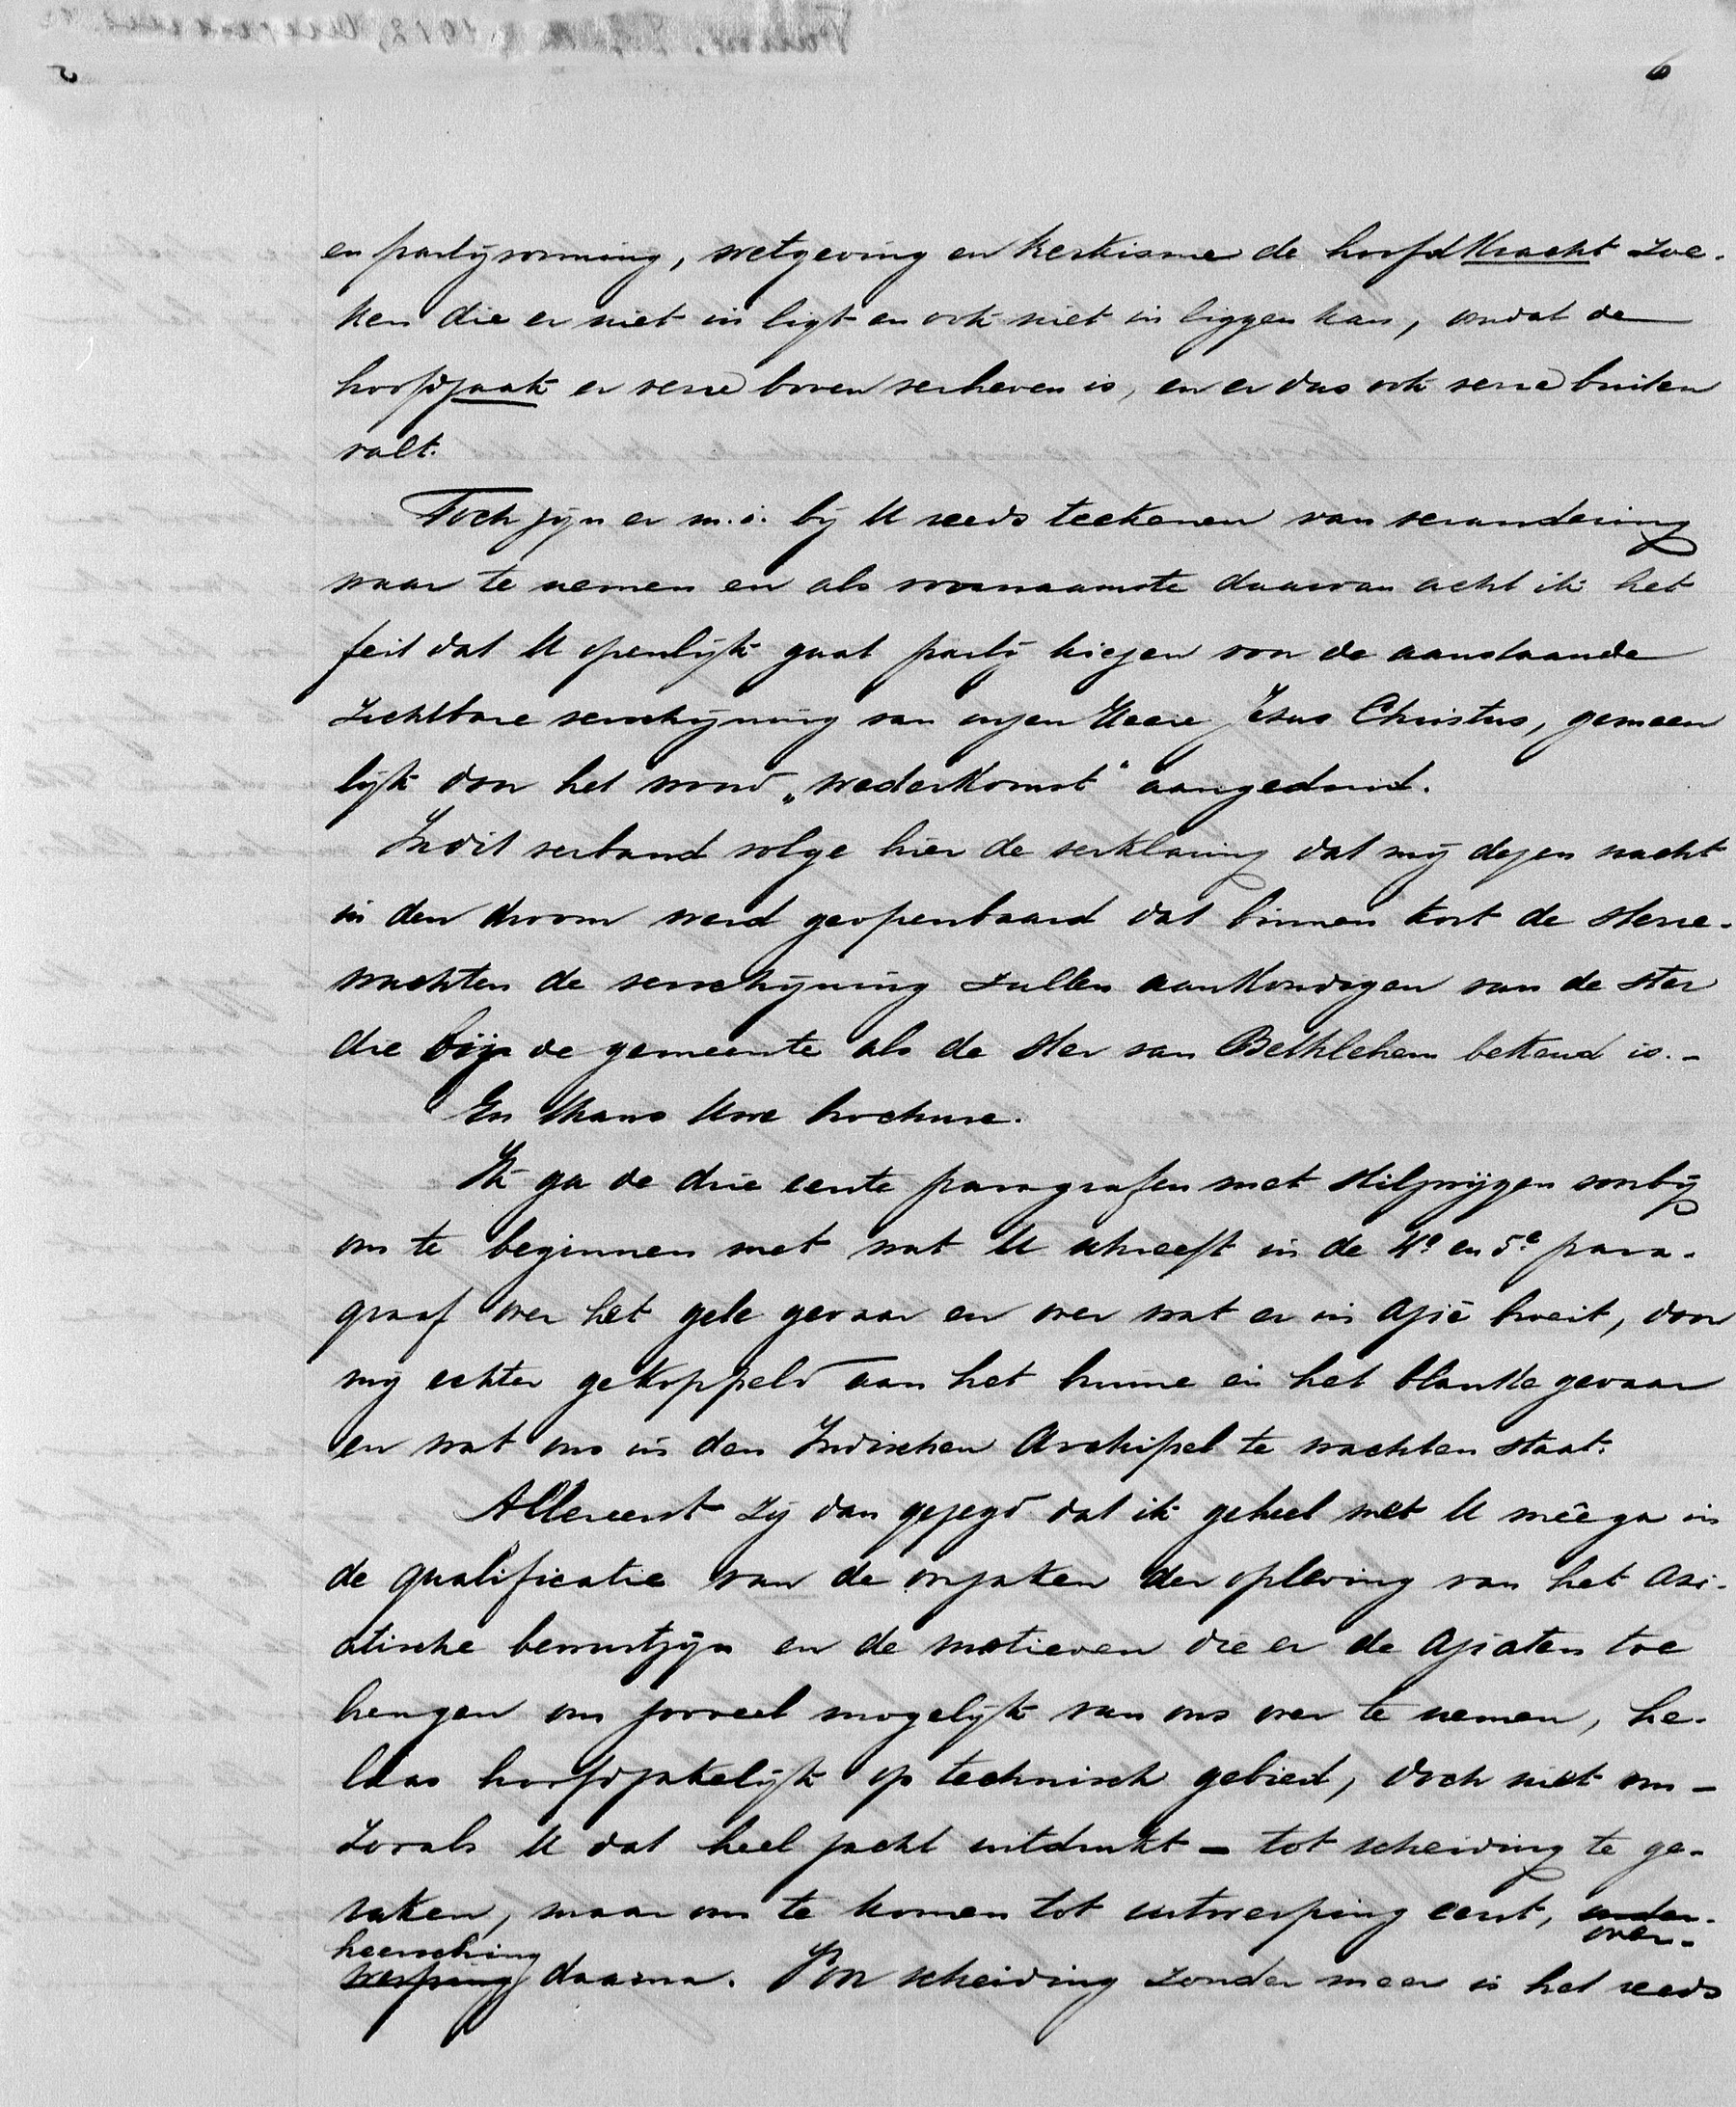 6
en partijvorming, wetgeving en kerkisme de hoofdkracht zoe-
ken die er niet in ligt en ook niet in liggen kan, omdat de
hoofdzaak er verre boven verheven is, en er dus ook verre buiten
valt.
Toch zijn er m.i. bij U reeds teekenen van verandering
waar te nemen en als voornaamste daarvan acht ik het
feit dat U openlijk gaat partij kiezen voor de aanstaande
zichtbare verschijning van onzen Heere Jezus Christus, gemeen
lijk door het woord „wederkomst" aangeduid.
In dit verband volge hier de verklaring dat mij dezen nacht
in den droom werd geopenbaard dat binnen kort de sterre-
wachten de verschijning zullen aankondigen van de ster
die bij de gemeente als de ster van Bethlehem bekend is.-
En thans Uwe brochure.
Ik ga de drie eerste paragrafen met stilzwijgen voorbij
om te beginnen met wat U schreeft in de 4e en 5e para-
graaf over het gele gevaar en over wat er in Azië broeit, door
mij echter gekoppeld aan het bruine en het blanke gevaar
en wat ons in den Indischen Archipel te wachten staat.
Allereerst zij dan gezegd dat ik geheel met U mêega in
de qualificatie van de oorzaken der opleving van het Azi-
atische bewustzijn en de motieven die er de Aziaten toe
brengen om zooveel mogelijk van ons over te nemen, he-
laas hoofdzakelijk op technisch gebied, doch niet om -
zooals U dat heel zacht uitdrukt - tot scheiding te ge-
raken, maar om te komen tot uitwerping eerst, onder-
over-
heersching
werping daarna. Voor scheiding zonder meer is het reeds